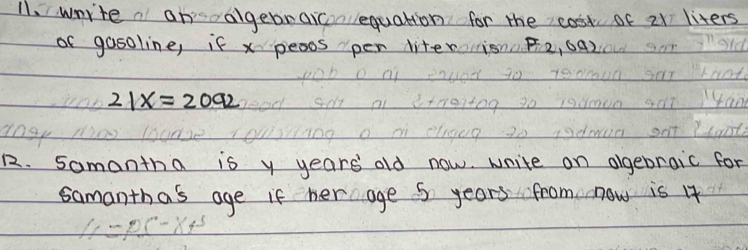 11. write an algebraic equation for the cost of 21 liters
of gasoline, if x pesos per liter is ₱2,092
21x = 2092
12. Samantha is y years old now. Write an algebraic for
Samantha's age if her age 5 years from now is 17